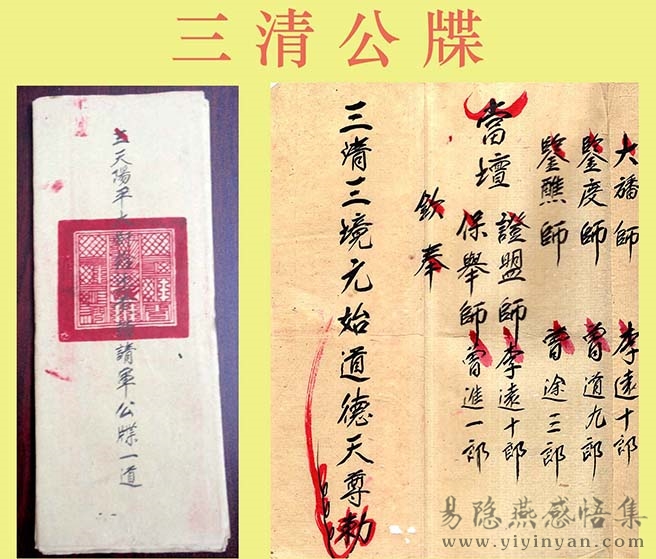 三清公牒
三天陽平
請軍公牒一道
大旛師 李遠十郎
鑒度師 曾道九郎
鑒醮師 曾途三郎
當壇
證盟師李遠十郎
保舉師曾進一郎
欽奉
三清三境元始道德天尊勅
易隐燕感悟集
www.yiyinyan.com